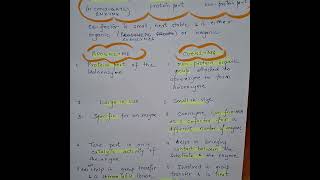 (or CONJUGATED ENZYME) protein part
co-factor is small, heat stable & is either
organic or inorganic
APOENZYME
COENZYME
1. Protein part of the Holoenzyme
1. Non-protein organic group attached to apoenzyme to form holoenzyme
2. Large in size
2. Small in size
3. Specific for an enzyme
3. Coenzyme can function as a cofactor for a different number of enzymes
4. Take part in only catalytic activity of the enzyme
4. Helps in bringing contact between the substrate & an enzyme
group transfer
Involved in group transfer